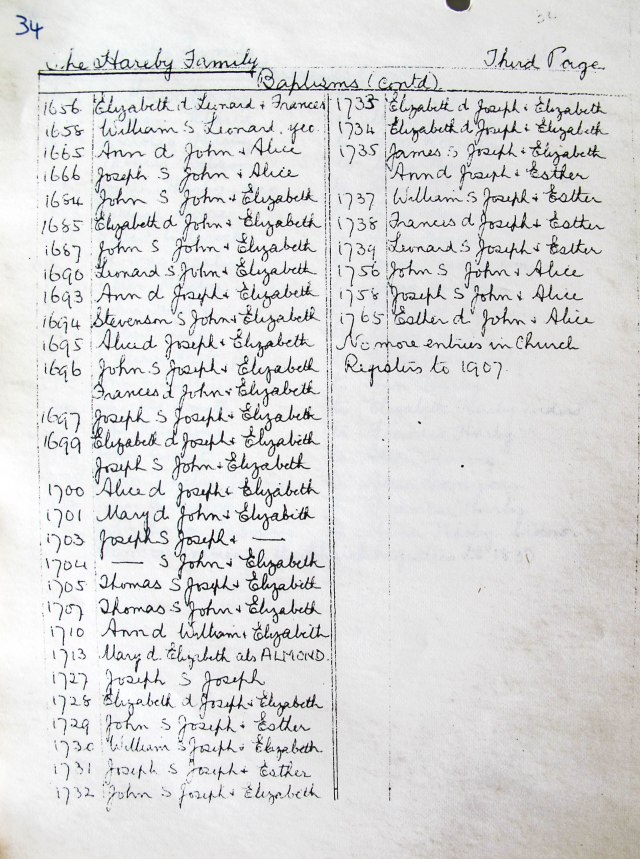 34
The Hareby Family Third Page
Baptisms (contd).
1656 Elizabeth d Leonard + Frances
1658 William S Leonard, yeo.
1665 Ann d John + Alice
1666 Joseph S John + Alice
1684 John S John + Elizabeth
1685 Elizabeth d John + Elizabeth
1687 John S John + Elizabeth
1690 Leonard S John + Elizabeth
1693 Ann d Joseph + Elizabeth
1694 Stevenson S John + Elizabeth
1695 Alice d Joseph + Elizabeth
1696 John S Joseph + Elizabeth
Frances d John + Elizabeth
1697 Joseph S Joseph + Elizabeth
1699 Elizabeth d Joseph + Elizabeth
Joseph S John + Elizabeth
1700 Alice d Joseph + Elizabeth
1701 Mary d John + Elizabeth
1703 Joseph S Joseph + —
1704 — S John + Elizabeth
1705 Thomas S Joseph + Elizabeth
1707 Thomas S John + Elizabeth
1710 Ann d William + Elizabeth
1713 Mary d. Elizabeth als ALMOND.
1727 Joseph S Joseph
1728 Elizabeth d Joseph + Elizabeth
1729 John S Joseph + Esther
1730 William S Joseph + Elizabeth
1731 Joseph S Joseph + Esther
1732 John S Joseph + Elizabeth
1733 Elizabeth d Joseph + Elizabeth
1734 Elizabeth d Joseph + Elizabeth
1735 James S Joseph + Elizabeth
Ann d Joseph + Esther
1737 William S Joseph + Esther
1738 Frances d Joseph + Esther
1739 Leonard S Joseph + Esther
1756 John S John + Alice
1758 Joseph S John + Alice
1765 Esther d. John + Alice
No more entries in Church
Registers to 1907.